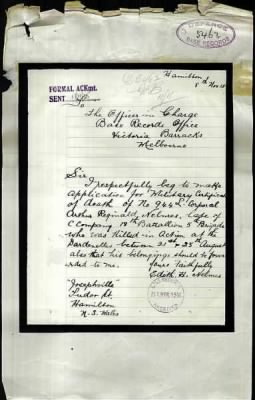 DEFENCE
5462
BASE RECORDS
Hamilton
8th Nov 15
FORMAL ACKmt.
SENT
The Officer in Charge
Base Records Office
Victoria Barracks
Melbourne
Sir
I respectfully beg to make
Application for Military Certificate
of death of No 944 L. Corporal
Arthur Reginald Holmes, late of
C Company 18th Battalion 5 Brigade
who was Killed in Action at the
Dardenelles between 21st & 25 August
also that his belongings should be forwa
rded to me.
Yours faithfully
Edith B. Holmes
"Josephville"
Tudor St.
Hamilton
N. S. Wales